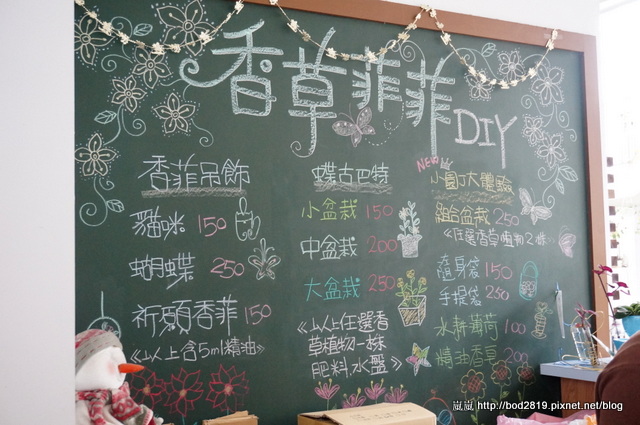 香草菲菲 DIY
香菲吊飾
貓咪 150
蝴蝶 250
祈願香菲 150
《以上含5ml精油》
蝶古巴特
小盆栽 150
中盆栽 200
大盆栽 250
《以上任選香
草植物一株
肥料水盤》
NEW
小園丁大體驗
組合盆栽 250
《任選香草植物2株
隨身袋 150
手提袋 250
水耕薄荷 100
精油香皂 200
嵐嵐 http://bod2819.pixnet.net/blog